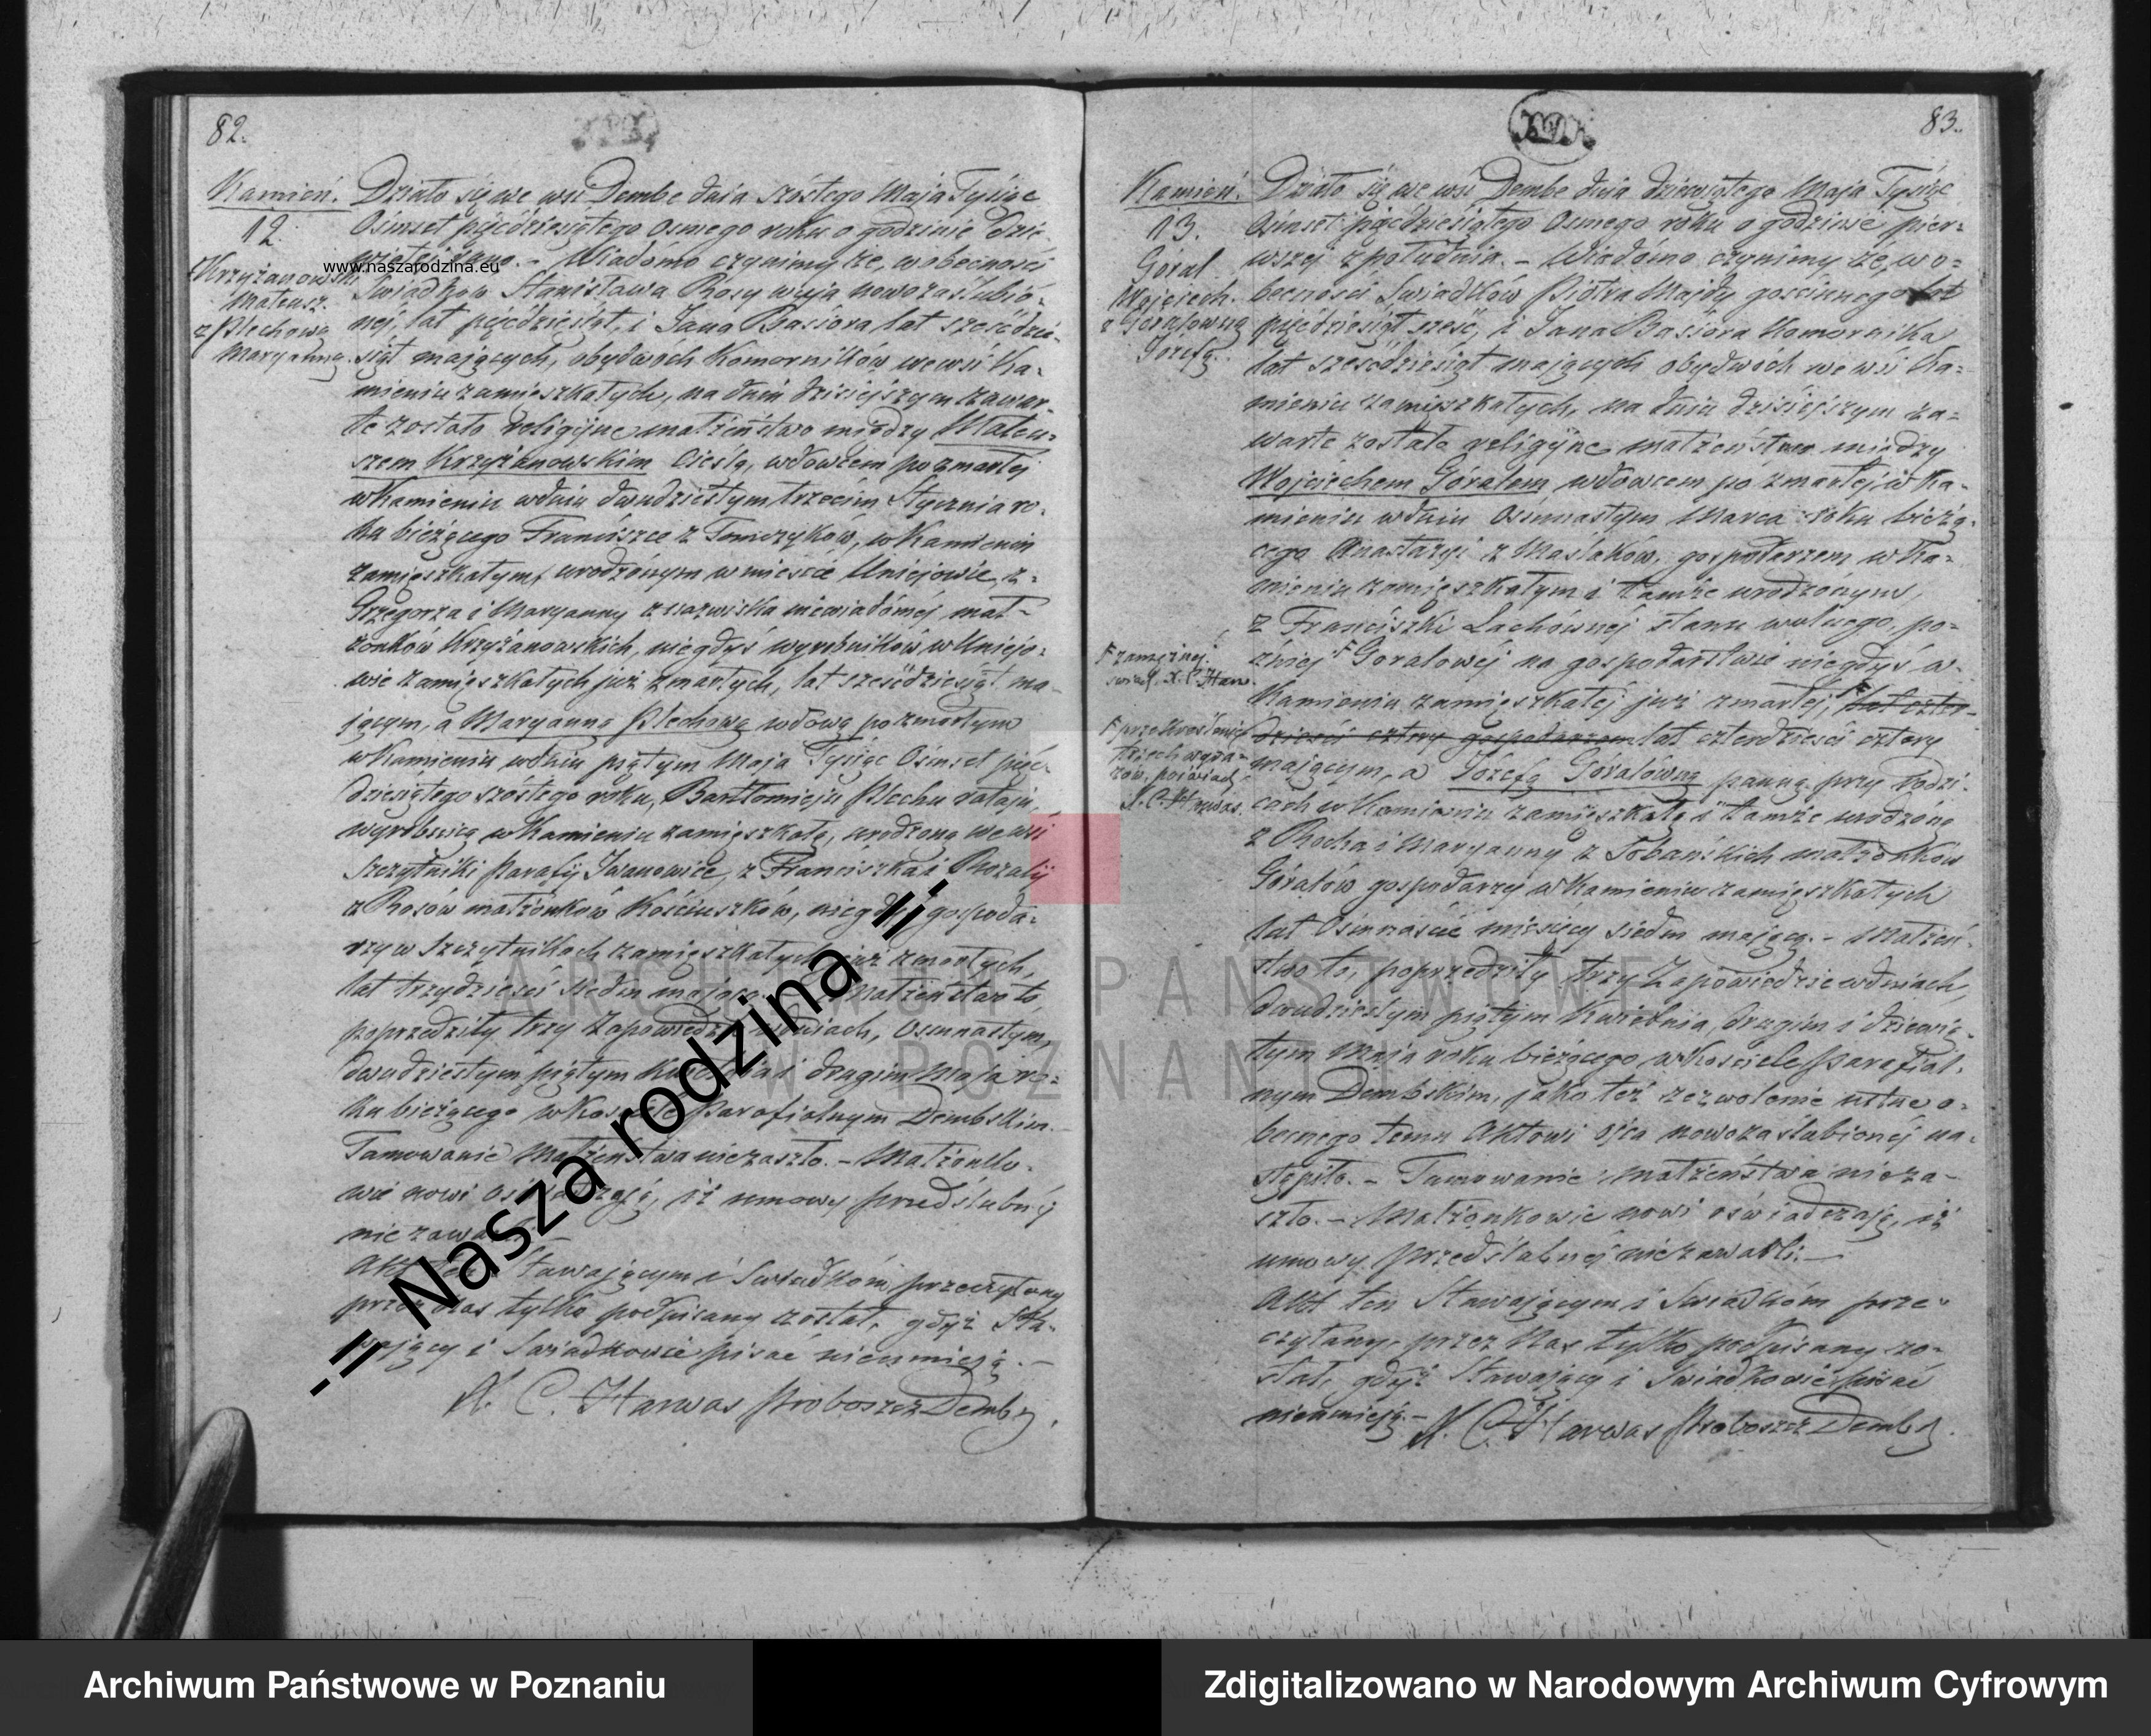 82.
Kamień.
12.
Krzyżanowski
Mateusz.
z Plechową
Maryanną.
Działo się we wsi Dembe dnia szóstego Maja Tysiąc
Ośmset pięćdziesiątego osmego roku o godzinie dzie-
wiątej rano. – Wiadomo czynimy że, w obecności
Świadków Stanisława Rosy wuja nowozaślubio-
nej, lat pięćdziesiąt, i Jana Basiora lat sześćdzie-
siąt mających, obydwóch Komorników we wsi Ka-
mieniu zamieszkałych, na dniu dzisiejszym zawar-
te zostało religijne małżeństwo między Mateu-
szem Krzyżanowskim Cieślą, wdowcem po zmarłej
w Kamieniu w dniu dwudziestym trzecim Stycznia ro-
ku bieżącego Franciszce z Tomczyków, w Kamieniu
zamieszkałym, urodzonym w mieście Uniejowie z-
Grzegorza i Maryanny z nazwiska niewiadomej mał-
żonków Krzyżanowskich, niegdyś wyrobników w Uniejo-
wie zamieszkałych już zmarłych, lat sześćdziesiąt ma-
jącym, a Maryanną Plechową wdową po zmarłym
w Kamieniu w dniu piątym Maja Tysiąc Ośmset pięć-
dziesiątego szóstego roku, Bartłomieju Plechu rataju,
wyrobnicą w Kamieniu zamieszkałą, urodzoną we wsi
Szczytniki Parafij Iwanowice, z Franciszka i Rozalij
z Rosów małżonków Kościuszków, niegdyś gospoda-
rzy w Szczytnikach zamieszkałych już zmarłych,
lat trzydzieści siedm mającą. – Małżeństwo to,
poprzedziły trzy Zapowiedzie w dniach, osmnastym,
dwudziestym piątym Kwietnia i drugim Maja ro-
ku bieżącego w Kościele Parafialnym Dembskim.
Tamowanie Małżeństwa niezaszło. – Małżonko-
wie nowi oświadczają, iż umowy przedślubnéj
nie zawarli. –
Akt ten Stawającym i Świadkom przeczytany
przez Nas tylko podpisany został, gdyż Sta-
wający i Świadkowie pisać nieumieją. –
X. C. Harwas Proboszcz Demby.
83.
Kamień.
13.
Góral
Wojciech.
z Góralówną
Józefą.
Działo się we wsi Dembe dnia dziewiątego Maja Tysiąc
Ośmset pięćdziesiątego osmego roku o godzinie pier-
wszej z południa. – Wiadomo czynimy że, w o-
becności Świadków Piotra Majdy gościnnego lat
pięćdziesiąt sześć, i Jana Basiora Komornika
lat sześćdziesiąt mających obydwóch we wsi Ka-
mieniu zamieszkałych, na dniu dzisiejszym za-
warte zostało religijne małżeństwo między
Wojciechem Góralem, wdowcem po zmarłej w Ka-
mieniu w dniu Osmnastym Marca roku bieżą-
cego Anastazyi z Maślaków, gospodarzem w Ka-
mieniu zamieszkałym i tamże urodzonym,
z Franciszki Lachównej stanu wolnego, po-
źniej F Góralowej na gospodarstwie niegdyś w-
F zamężnej.
Kamieniu zamieszkałej już zmarłej, F lat czter-
dzieści cztery gospodarzem lat czterdzieści cztery
F przekreślenie
trzech wyra-
zów, poświad.
X. C. Harwas.
mającym, a Józefą Góralówną panną przy rodzi-
cach w Kamieniu zamieszkałą i tamże urodzoną
z Rocha i Maryanny z Sobańskich małżonków
Góralów gospodarzy w Kamieniu zamieszkałych
lat Osmnaście miesięcy siedm mającą. – Małżeń-
stwo to, poprzedziły trzy Zapowiedzie w dniach,
dwudziestym piątym Kwietnia, drugim i dziewią-
tym Maja roku bieżącego w Kościele Parafial-
nym Dembskim, jako też zezwolenie ustne o-
becnego temu Aktowi ojca nowozaślubionej na-
stąpiło. – Tamowanie małżeństwa nieza-
szło. – Małżonkowie nowi oświadczają, iż
umowy przedślubnej niezawarli. –
Akt ten Stawającym i Świadkom prze-
czytany, przez Nas tylko podpisany zo-
stał, gdyż Stawający i Świadkowie pisać
nieumieją. – X. C. Harwas Proboszcz Demby.
www.naszarodzina.eu
-= Nasza rodzina =-
ARCHIWUM PAŃSTWOWE
W POZNANIU
Archiwum Państwowe w Poznaniu
Zdigitalizowano w Narodowym Archiwum Cyfrowym